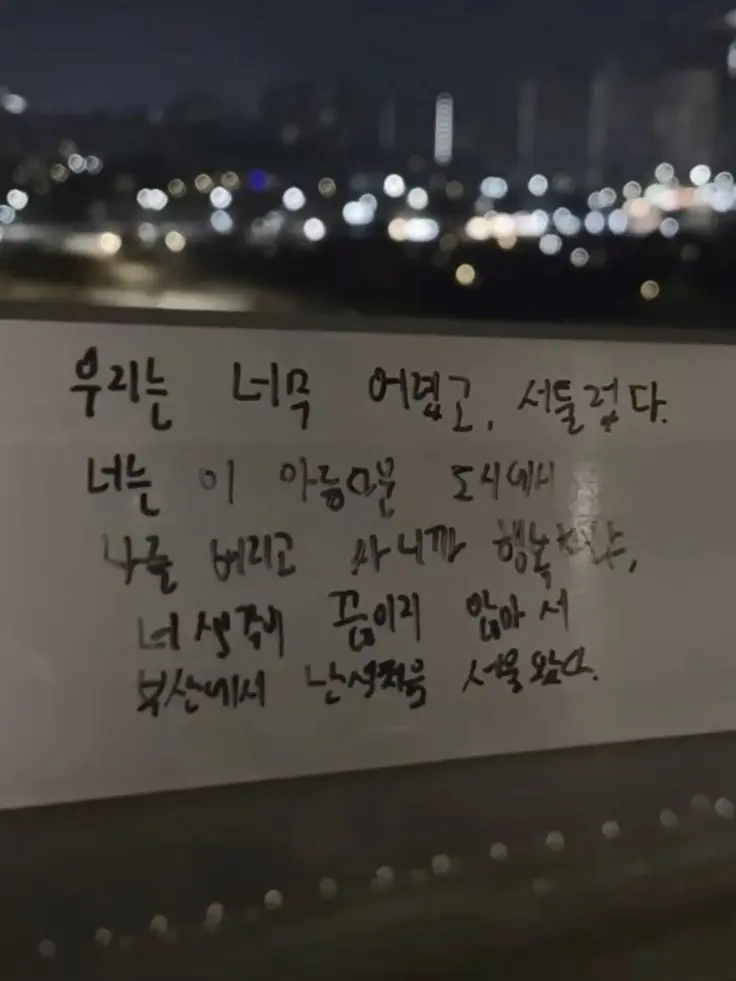 우리는 너무 어렸고, 서툴렀다.
너는 이 아름다운 도시에서
나를 버리고 사니까 행복하냐,
너 생각이 끊이지 않아서
부산에서 난생처음 서울 왔다.